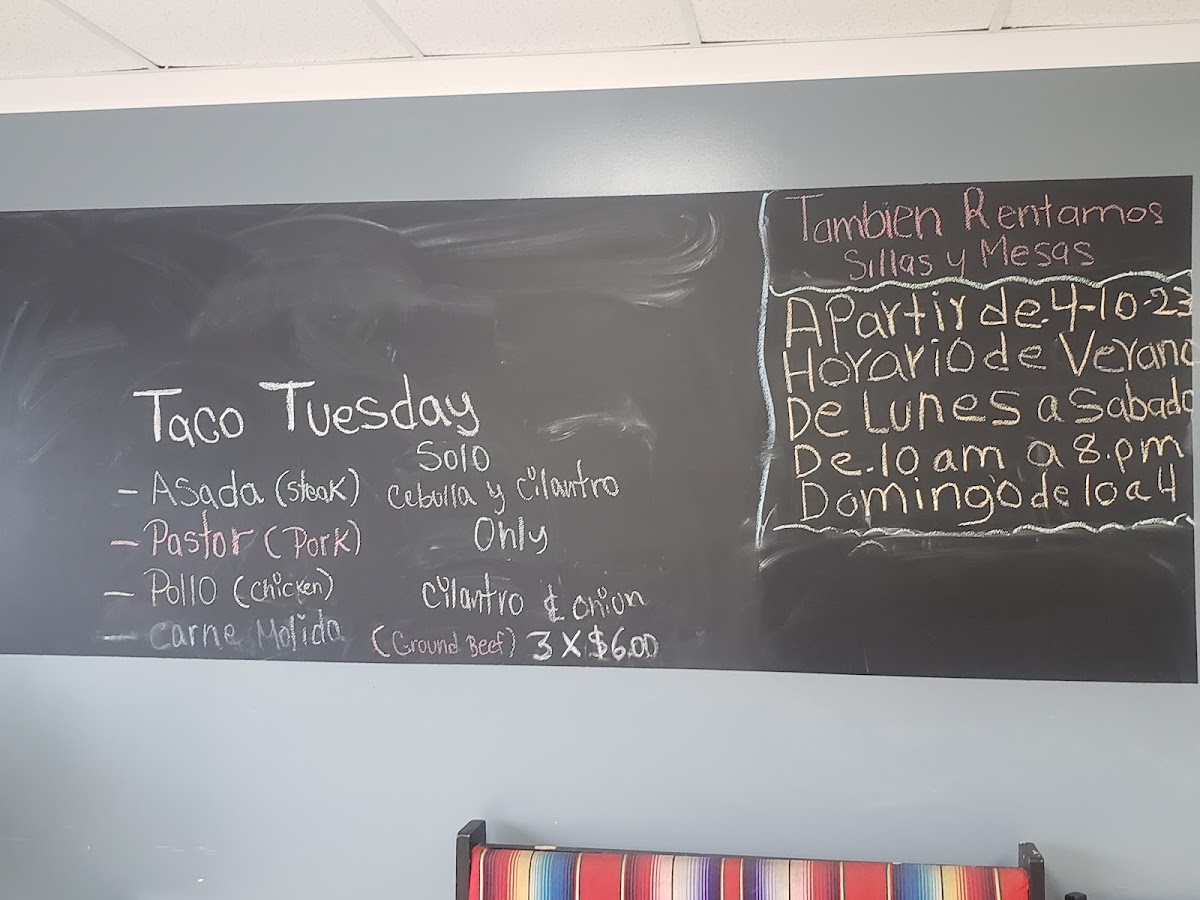 Taco Tuesday
- Asada (steak)
- Pastor (Pork)
- Pollo (chicken)
- Carne Molida (Ground Beef) 3 X $6.00
Solo
Cebolla y Cilantro
Only
Cilantro & onion
Tambien Rentamos
Sillas y Mesas
A Partir de. 4-10-23
Horario de Verano
De Lunes a Sabado
De. 10 am a 8.pm
Domingo de 10 a 4